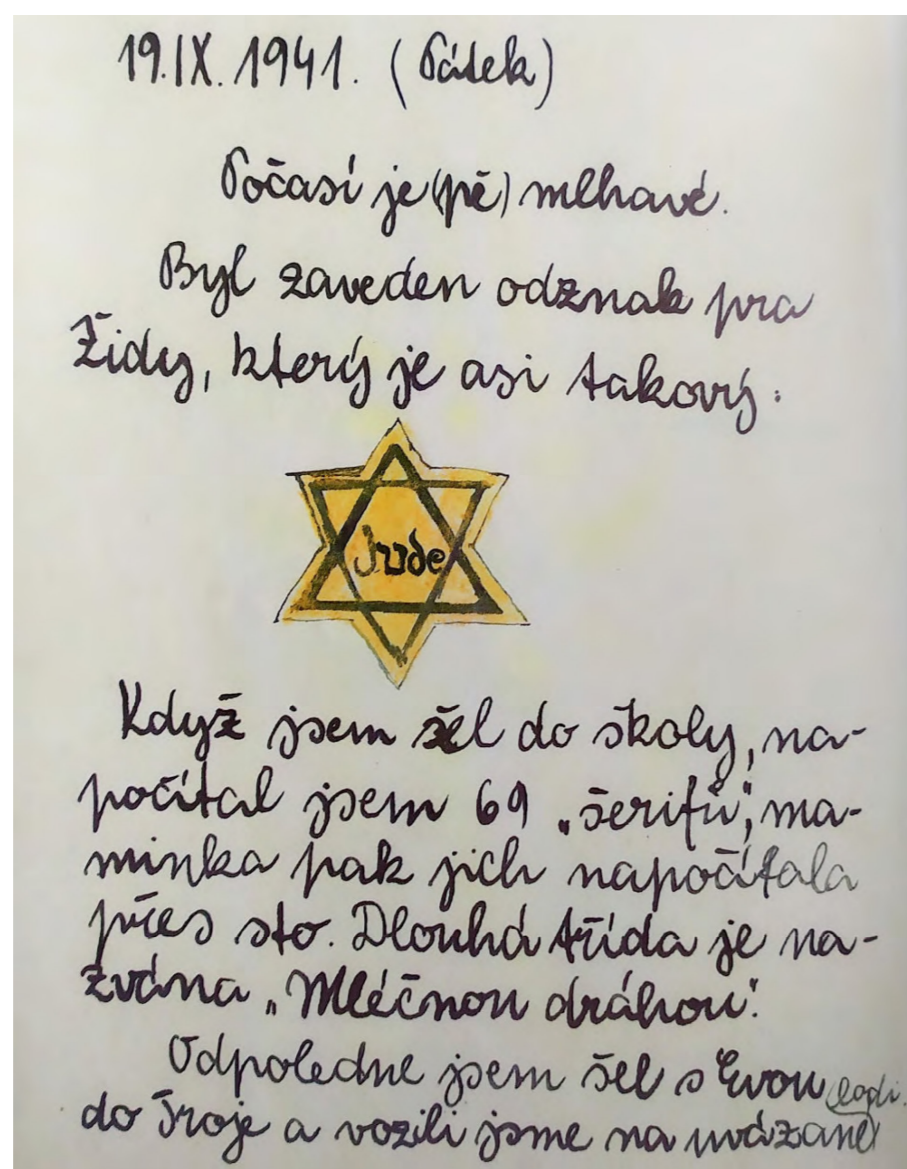 19.IX.1941. (Pátek)
Počasí je (pě) mlhavé.
Byl zaveden odznak pro
Židy, který je asi takový:
Jude
Když jsem šel do školy, na-
počítal jsem 69 „šerifů“, ma-
minka pak jich napočítala
přes sto. Dlouhá třída je na-
zvána „Mléčnou dráhou“.
Odpoledne jsem šel s Evou
do Troje a vozili jsme na uvázané
lodi.